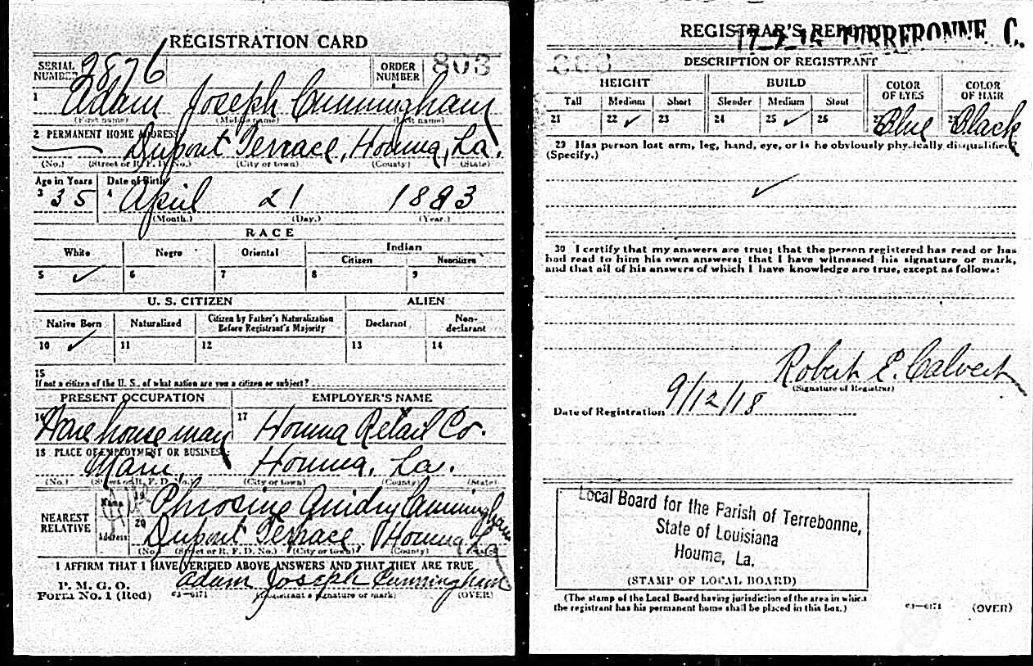 REGISTRATION CARD
SERIAL NUMBER 2876 ORDER NUMBER 803
1 Adam Joseph Cunningham
(First name) (Middle name) (Last name)
2 PERMANENT HOME ADDRESS:
Dupont Terrace, Houma, La.
(No.) (Street or R. F. D. No.) (City or town) (County) (State)
Age in Years Date of Birth
3 35 4 April 21 1883
(Month.) (Day.) (Year.)
RACE
White Negro Oriental Indian
Citizen Noncitizen
5 ✓ 6 7 8 9
U. S. CITIZEN ALIEN
Native Born Naturalized Citizen by Father's Naturalization Before Registrant's Majority Declarant Non-declarant
10 ✓ 11 12 13 14
15
If not a citizen of the U. S., of what nation are you a citizen or subject?
PRESENT OCCUPATION EMPLOYER'S NAME
16 Warehouseman 17 Houma Retail Co.
18 PLACE OF EMPLOYMENT OR BUSINESS:
Main, Houma, La.
(No.) (Street or R. F. D. No.) (City or town) (County) (State)
NEAREST RELATIVE
Name 19 Phrosine Guidry Cunningham
Address 20 Dupont Terrace Houma La
(No.) (Street or R. F. D. No.) (City or town) (County) (State)
I AFFIRM THAT I HAVE VERIFIED ABOVE ANSWERS AND THAT THEY ARE TRUE
P. M. G. O.
Form No. 1 (Red) 03—6171 Adam Joseph Cunningham
(Registrant's signature or mark) (OVER)
REGISTRAR'S REPORT
TERREBONNE C.
803
DESCRIPTION OF REGISTRANT
HEIGHT BUILD COLOR OF EYES COLOR OF HAIR
Tall Medium Short Slender Medium Stout
21 22 ✓ 23 24 25 ✓ 26 27 Blue 28 Black
29 Has person lost arm, leg, hand, eye, or is he obviously physically disqualified?
(Specify.)
✓
30 I certify that my answers are true; that the person registered has read or has
had read to him his own answers; that I have witnessed his signature or mark,
and that all of his answers of which I have knowledge are true, except as follows:
Robert E. Calvert
(Signature of Registrar)
Date of Registration 9/12/18
Local Board for the Parish of Terrebonne,
State of Louisiana
Houma, La.
(STAMP OF LOCAL BOARD)
(The stamp of the Local Board having jurisdiction of the area in which
the registrant has his permanent home shall be placed in this box.)
03—6171 (OVER)